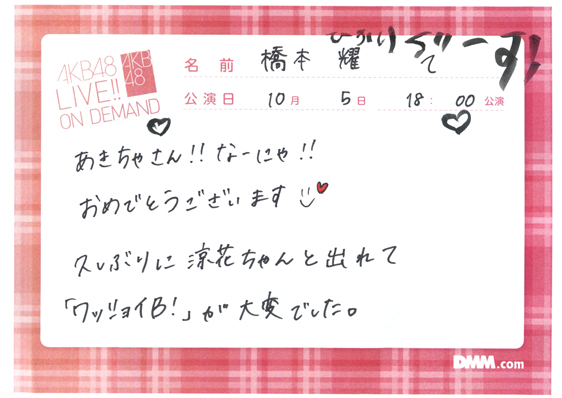 AKB48
LIVE!!
ON DEMAND
AKB
48
名前 橋本 耀
ひかりでーす!
公演日 10月 5日 18: 00 公演
あきちゃさん!! なーにゃ!!
おめでとうございます
久しぶりに涼花ちゃんと出れて
「ワッショイB!」が大変でした。
DMM.com